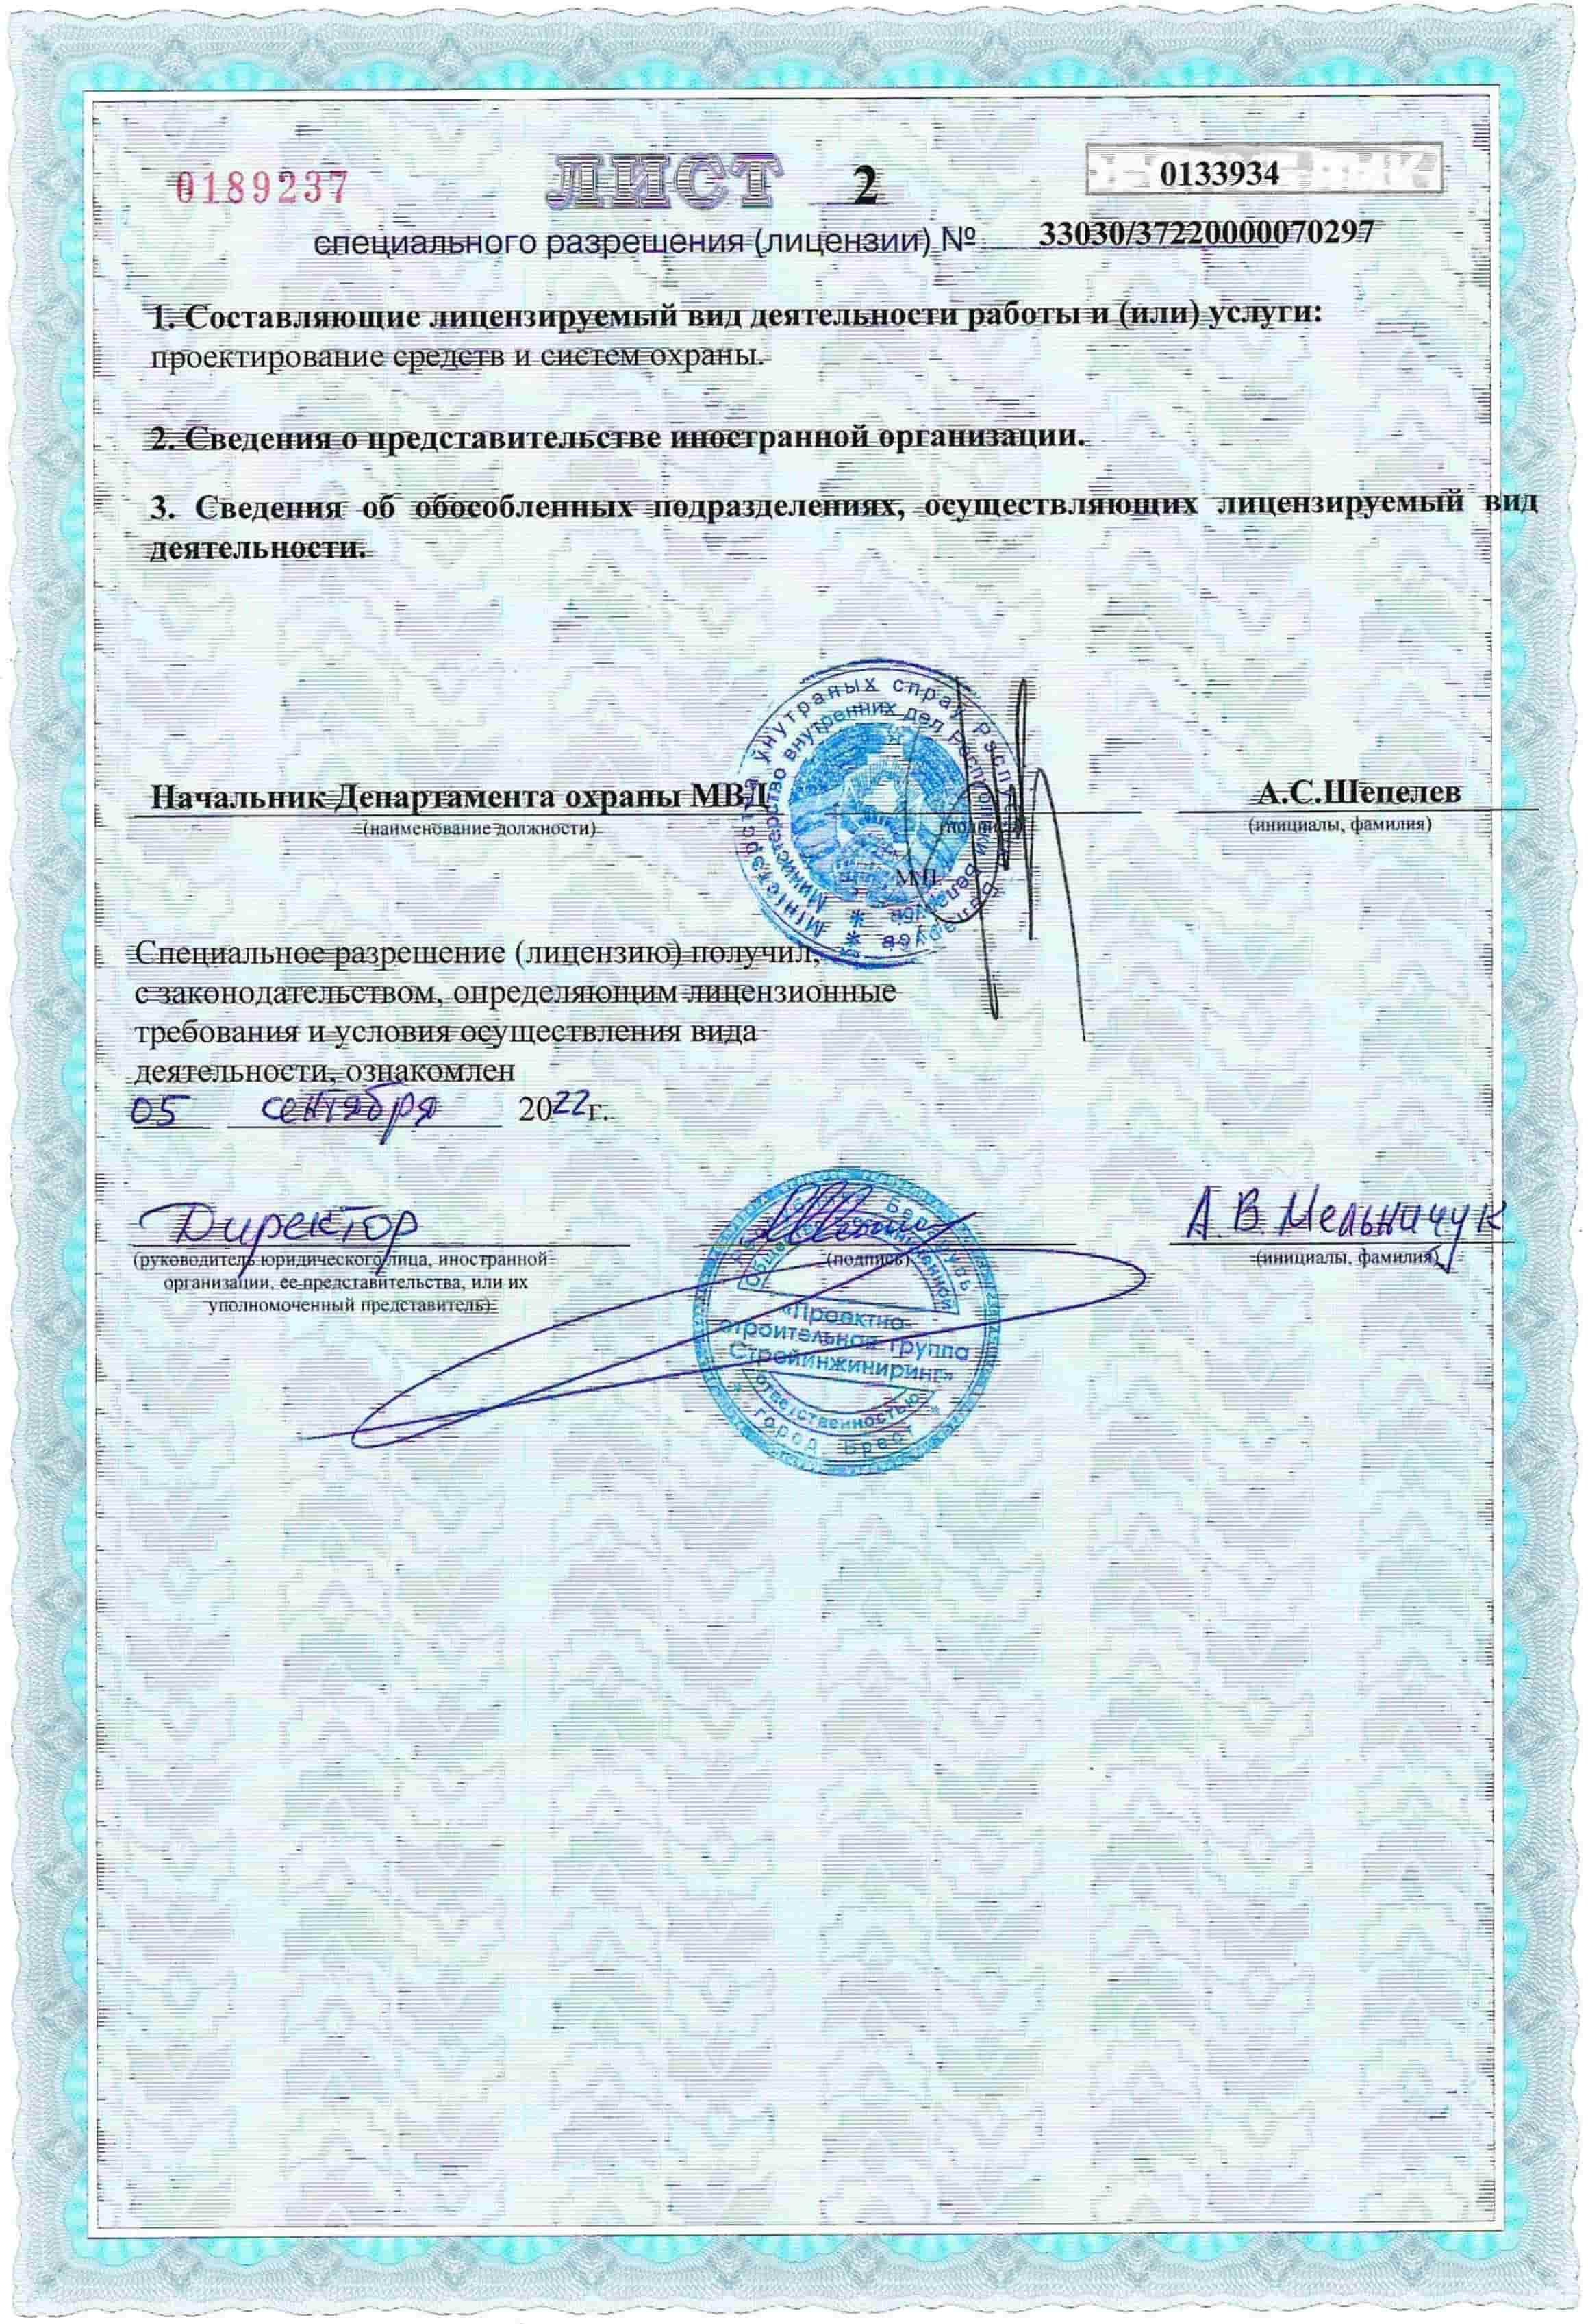 0189237
ЛИСТ 2
0133934
специального разрешения (лицензии) № 33030/37220000070297
1. Составляющие лицензируемый вид деятельности работы и (или) услуги:
проектирование средств и систем охраны.
2. Сведения о представительстве иностранной организации.
3. Сведения об обособленных подразделениях, осуществляющих лицензируемый вид
деятельности.
Міністэрства ўнутраных спраў Рэспублікі Беларусь
Министерство внутренних дел Республики Беларусь
Начальник Департамента охраны МВД
А.С.Шепелев
(наименование должности)
(подпись)
(инициалы, фамилия)
М.П.
Специальное разрешение (лицензию) получил,
с законодательством, определяющим лицензионные
требования и условия осуществления вида
деятельности, ознакомлен
05 сентября 2022г.
Директор
А.В. Мельничук
(руководитель юридического лица, иностранной
организации, ее представительства, или их
уполномоченный представитель)
(подпись)
(инициалы, фамилия)
«Проектно-
строительная группа
Стройинжиниринг»
ответственностью
город Брест